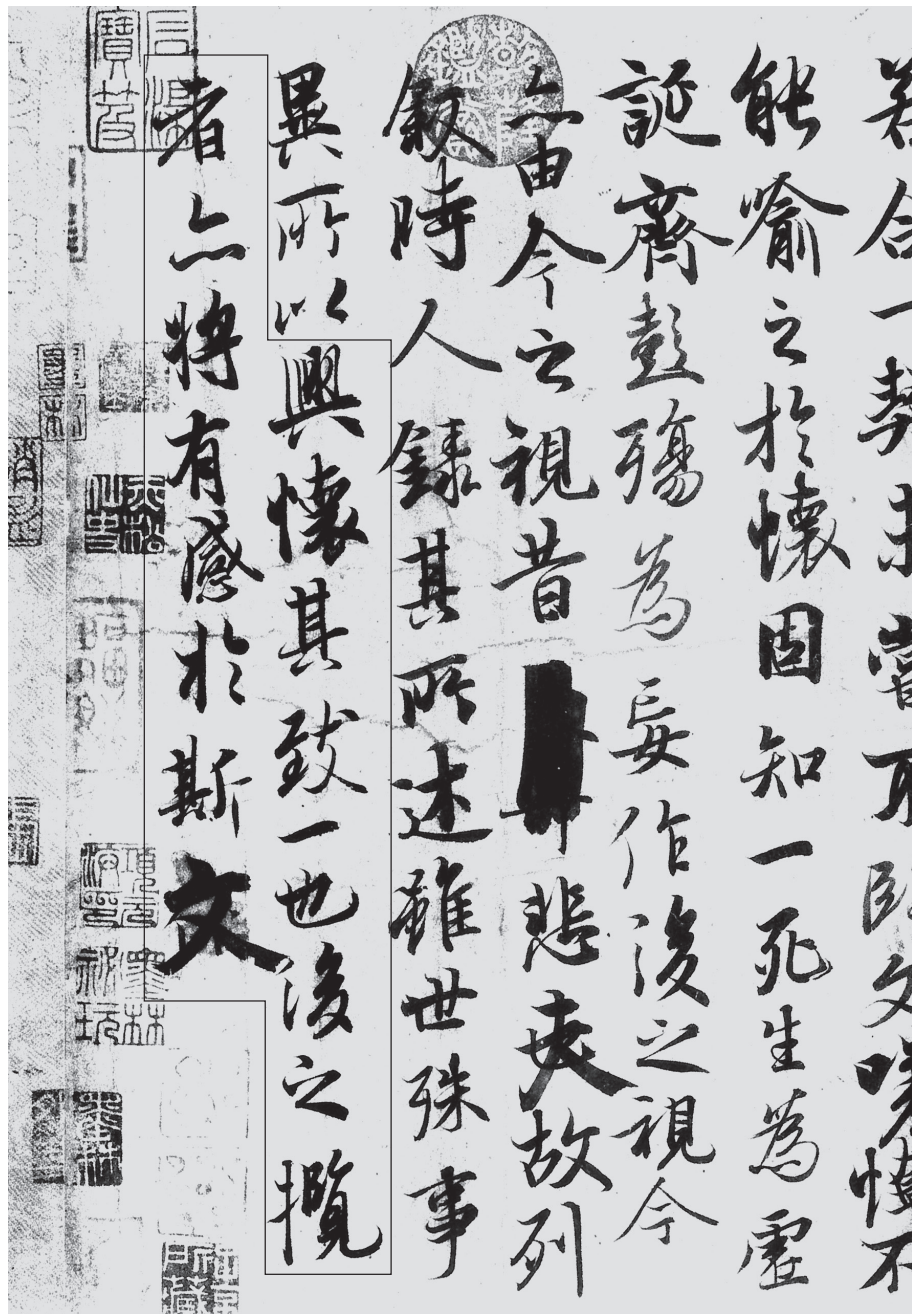 若合一契未嘗不臨文嗟悼不
能喻之於懷固知一死生為虛
誕齊彭殤為妄作後之視今
亦由今之視昔悲夫故列
敘時人錄其所述雖世殊事
異所以興懷其致一也後之攬
者亦將有感於斯文
乾隆鑑賞
石渠寶笈